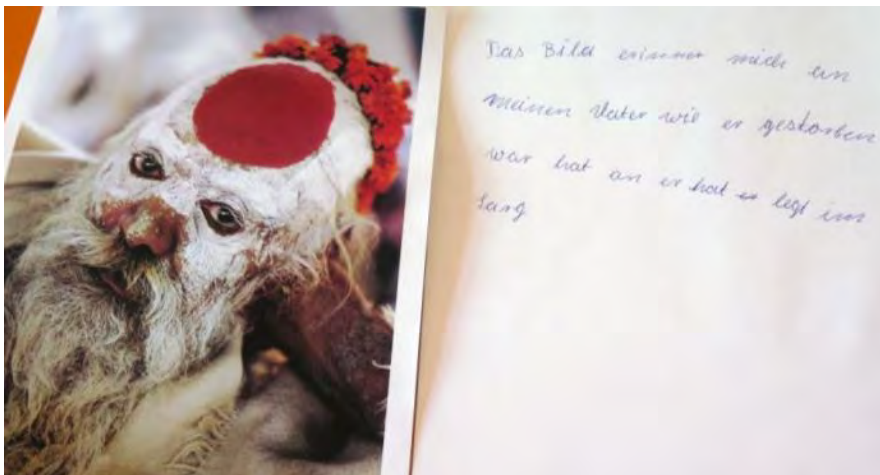 Das Bild erinner mich an
meinen Vater wie er gestorben
war hat an er hat er legt im
Sarg